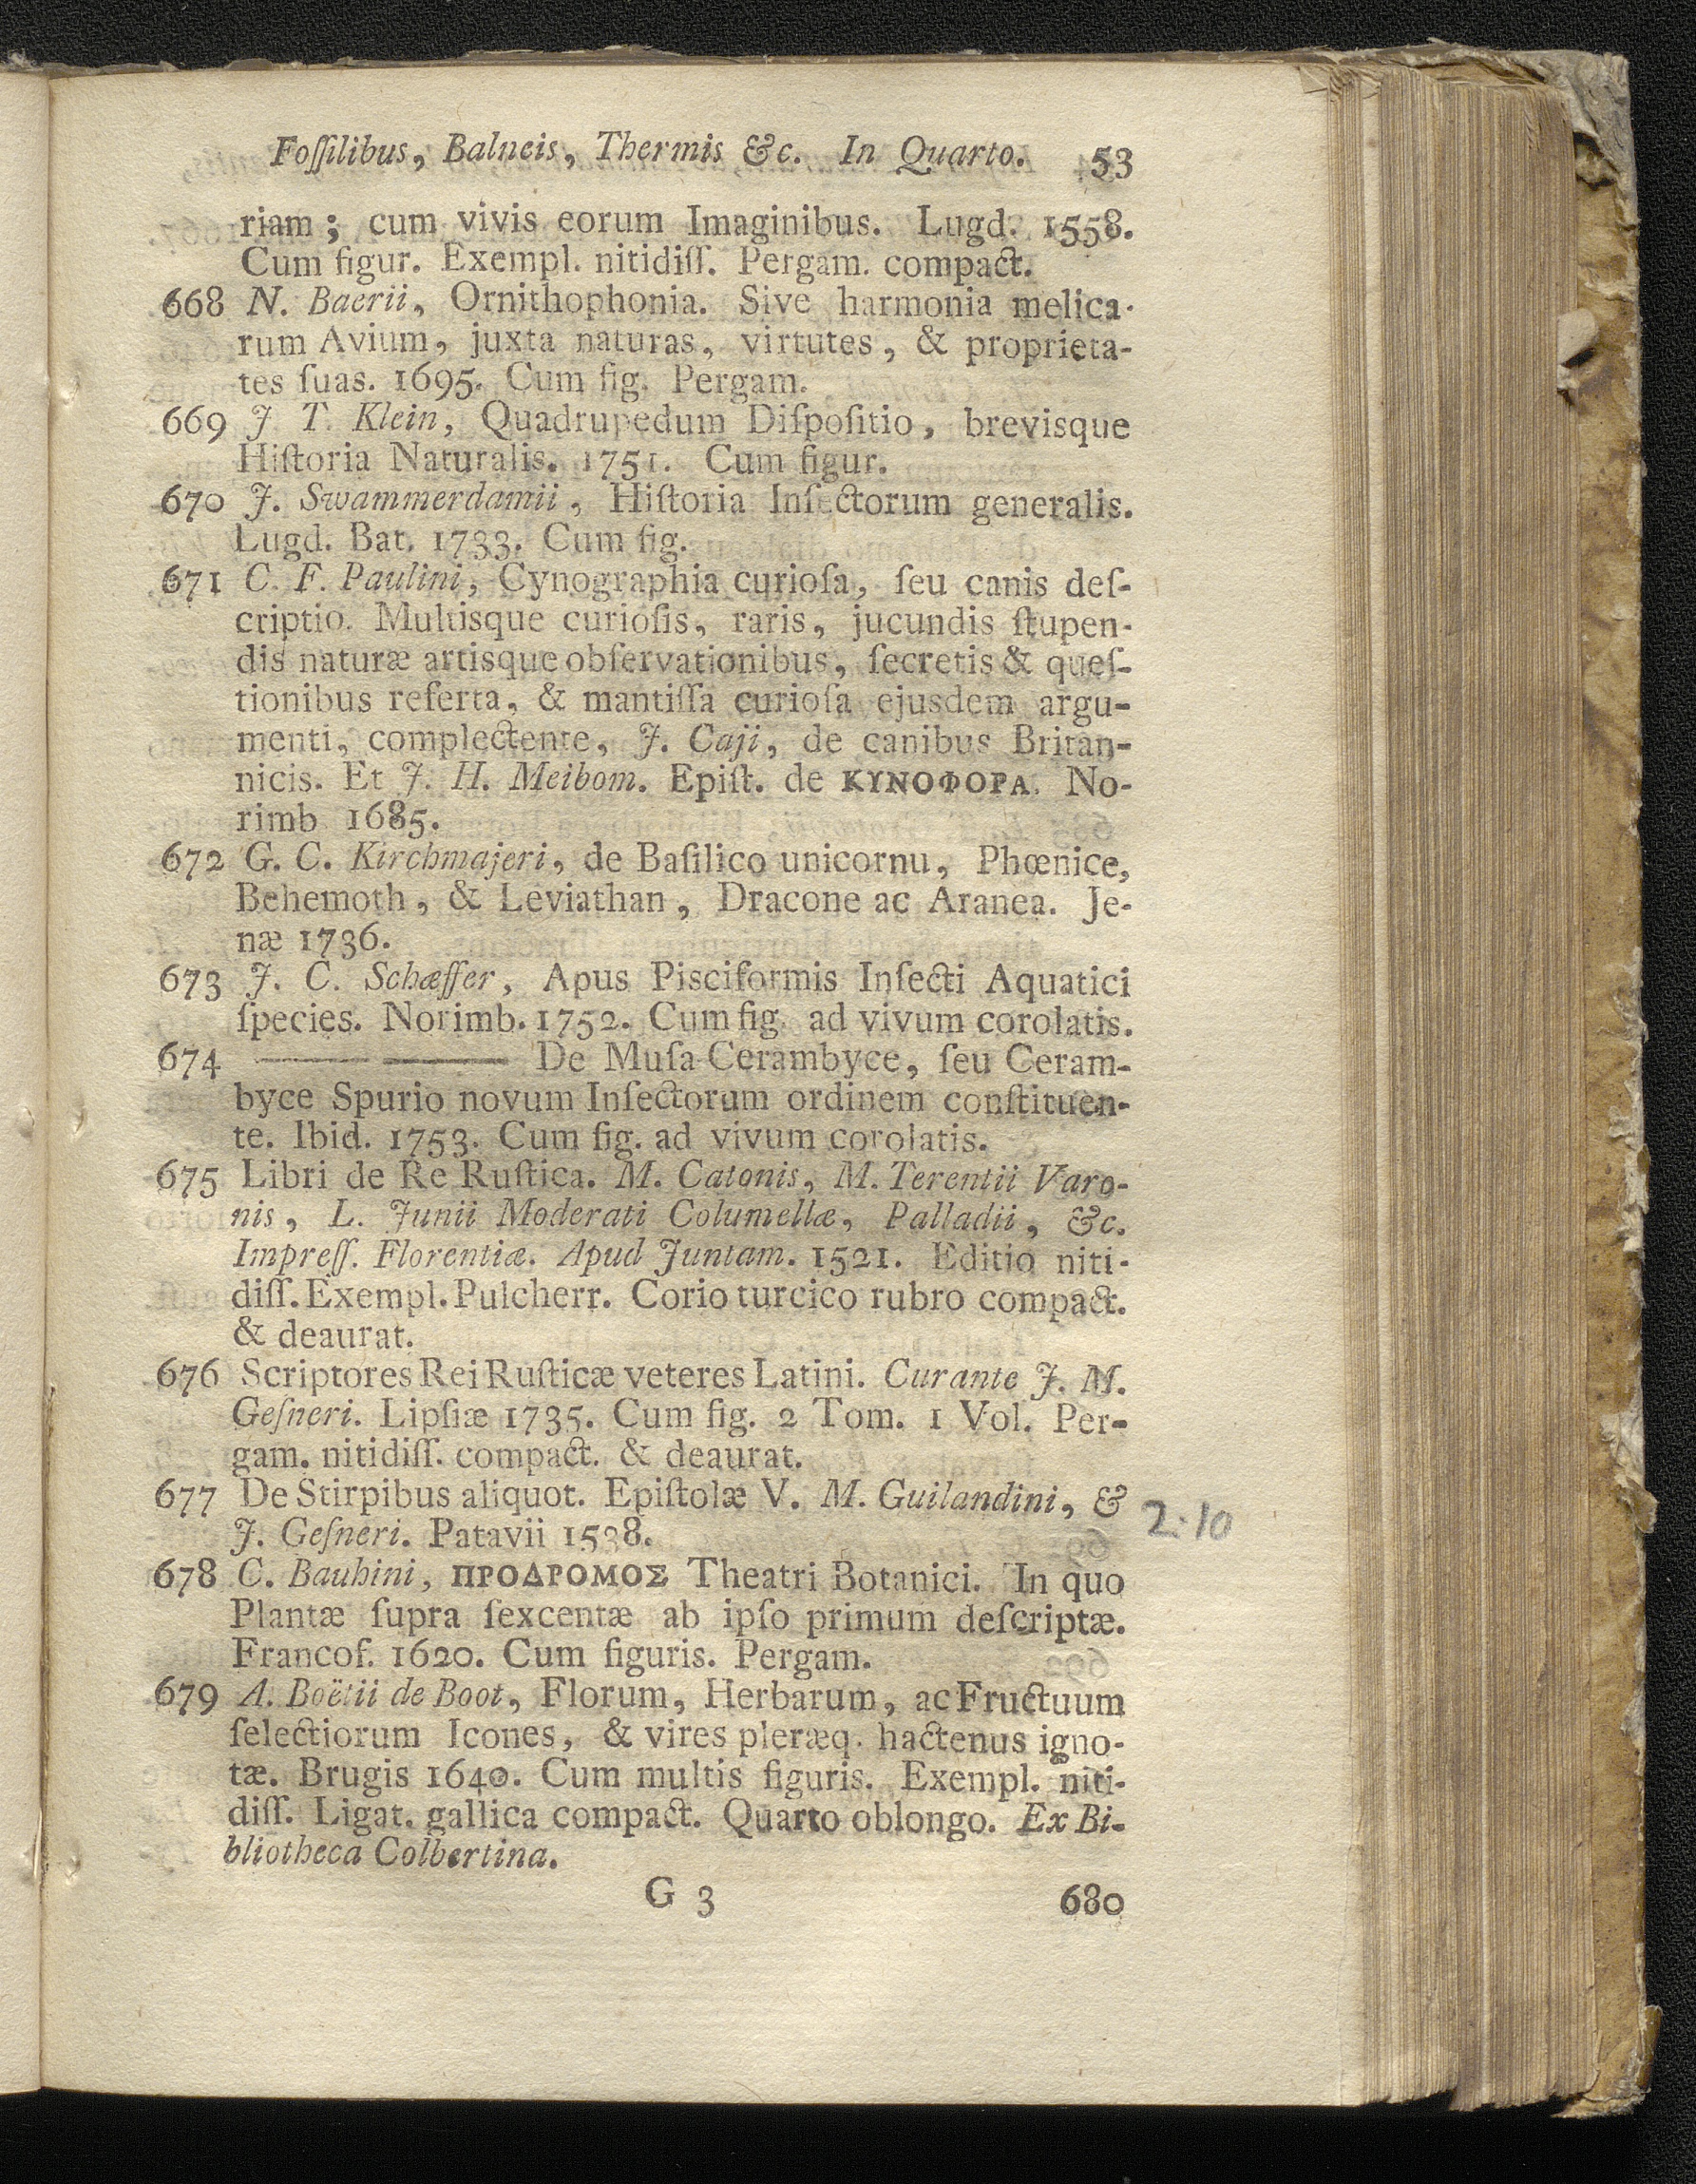 Foſſilibus, Balneis, Thermis &c. In Quarto. 53
riam; cum vivis eorum Imaginibus. Lugd. 1558.
Cum figur. Exempl. nitidiſſ. Pergam. compact.
668 N. Baerii, Ornithophonia. Sive harmonia melica-
rum Avium, juxta naturas, virtutes, & proprieta-
tes ſuas. 1695. Cum fig. Pergam.
669 J T. Klein, Quadrupedum Diſpoſitio, brevisque
Hiſtoria Naturalis. 1751. Cum figur.
670 J. Swammerdamii, Hiſtoria Inſectorum generalis.
Lugd. Bat. 1733. Cum fig.
671 C. F. Paulini, Cynographia curioſa, ſeu canis deſ-
criptio. Multisque curioſis, raris, jucundis ſtupen-
dis naturæ artisque obſervationibus, ſecretis & queſ-
tionibus referta, & mantiſſa curioſa ejusdem argu-
menti, complectente, J. Caji, de canibus Britan-
nicis. Et J. H. Meibom. Epiſt. de ΚΥΝΟΦΟΡΑ. No-
rimb 1685.
672 G. C. Kirchmajeri, de Baſilico unicornu, Phœnice,
Behemoth, & Leviathan, Dracone ac Aranea. Je-
næ 1736.
673 J. C. Schæffer, Apus Pisciformis Inſecti Aquatici
ſpecies. Norimb. 1752. Cum fig. ad vivum corolatis.
674 —— —— De Muſa Cerambyce, ſeu Ceram-
byce Spurio novum Inſectorum ordinem conſtituen-
te. Ibid. 1753. Cum fig. ad vivum corolatis.
675 Libri de Re Ruſtica. M. Catonis, M. Terentii Varo-
nis, L. Junii Moderati Columellæ, Palladii, &c.
Impreſſ. Florentiæ. Apud Juntam. 1521. Editio niti-
diſſ. Exempl. Pulcherr. Corio turcico rubro compact.
& deaurat.
676 Scriptores Rei Ruſticæ veteres Latini. Curante J. M.
Geſneri. Lipſiæ 1735. Cum fig. 2 Tom. 1 Vol. Per-
gam. nitidiſſ. compact. & deaurat.
677 De Stirpibus aliquot. Epiſtolæ V. M. Guilandini, &
J. Geſneri. Patavii 2.10
678 C. Bauhini, ΠΡΟΔΡΟΜΟΣ Theatri Botanici. In quo
Plantæ ſupra ſexcentæ ab ipſo primum deſcriptæ.
Francof. 1620. Cum figuris. Pergam.
679 A. Boëtii de Boot, Florum, Herbarum, ac Fructuum
ſelectiorum Icones, & vires pleræq. hactenus igno-
tæ. Brugis 1640. Cum multis figuris. Exempl. niti-
diſſ. Ligat. gallica compact. Quarto oblongo. Ex Bi-
bliotheca Colbertina.
G 3 680